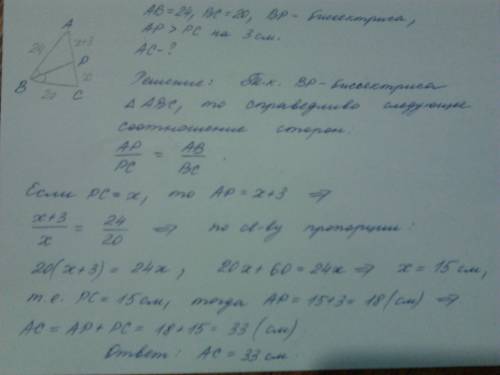 AB=24, BC=20, BP- биссектриса,
AP > PC на 3 см.
AC-?
A
24
x+3
P
x
B
20
C
Решение: Т.к. BP-биссектриса
△ABC, то справедливо следующее
соотношение сторон:
AP/PC = AB/BC.
Если PC=x, то AP=x+3 ⇒
x+3/x = 24/20 ⇒ по св-ву пропорции:
20(x+3) = 24x; 20x+60=24x ⇒ x=15 см,
т.е. PC=15 см, тогда AP=15+3=18 (см) ⇒
AC=AP+PC=18+15=33 (см)
Ответ: AC=33 см.